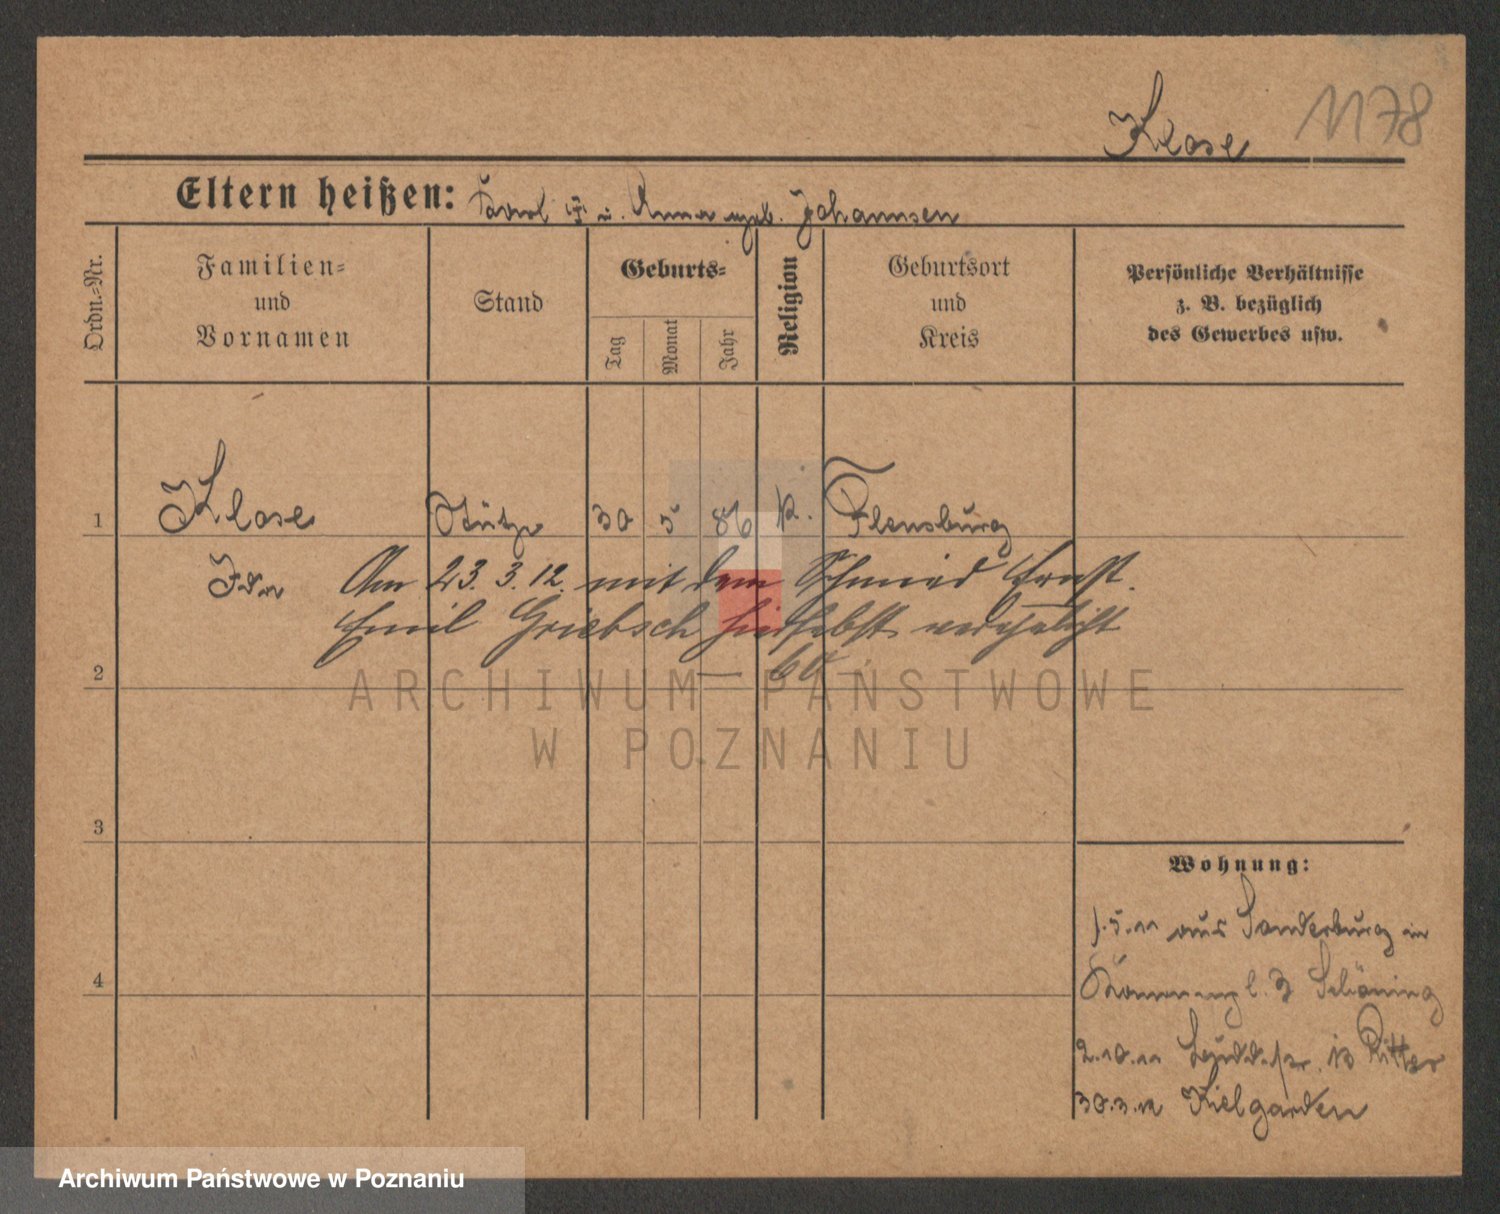 1178
Klose
Eltern heißen: Karl † u. Anna geb. Johannsen
Ordn.-Nr.
Familien-
und
Vornamen
Stand
Geburts-
Tag
Monat
Jahr
Religion
Geburtsort
und
Kreis
Persönliche Verhältnisse
z. B. bezüglich
des Gewerbes usw.
1 Klose Stütze 30 5 86 k. Flensburg
Ida Am 23. 3. 12. mit dem Schmied Ernst
Emil Griebsch hierselbst verehelicht
2
3
4
ARCHIWUM PAŃSTWOWE
W POZNANIU
Wohnung:
1.5.11 aus Sonderburg in
Schöning
2.10.11 13 Ritter
30.3.12 Kielgarden
Archiwum Państwowe w Poznaniu